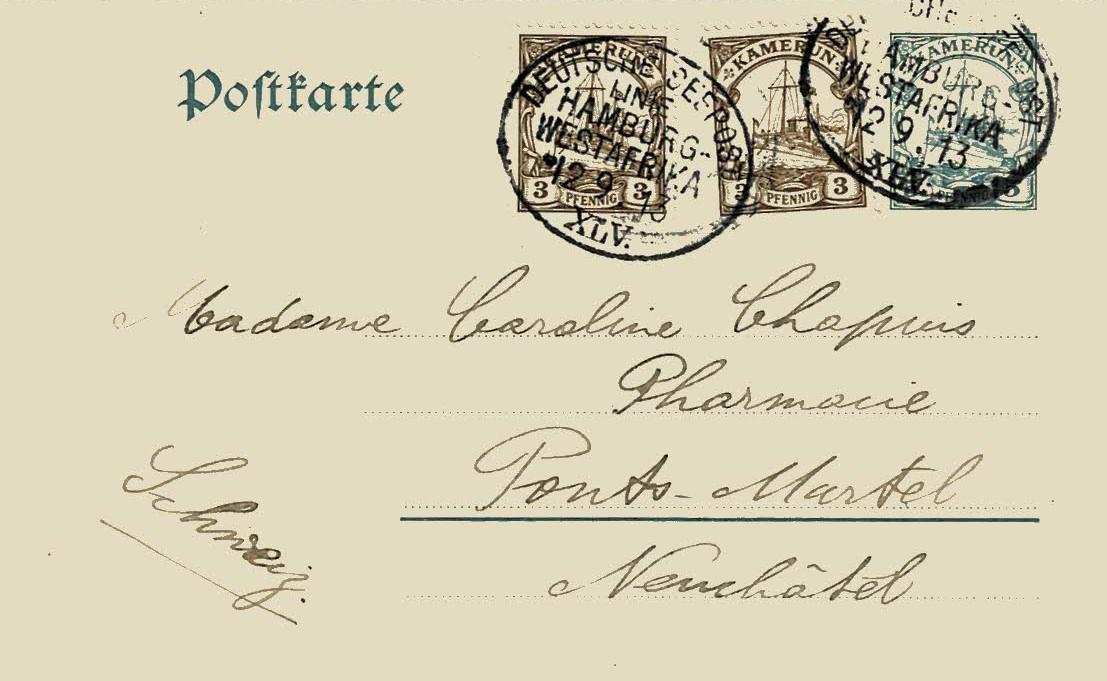 Postkarte
KAMERUN
3 PFENNIG 3
KAMERUN
3 PFENNIG 3
KAMERUN
5
DEUTSCHE SEEPOST
LINIE
HAMBURG-
WESTAFRIKA
12 9 13
XLV.
HAMBURG-
WESTAFRIKA
12 9. 13
XLV.
Madame Caroline Chapuis
Pharmacie
Ponts-Martel
Neuchâtel
Schweiz.